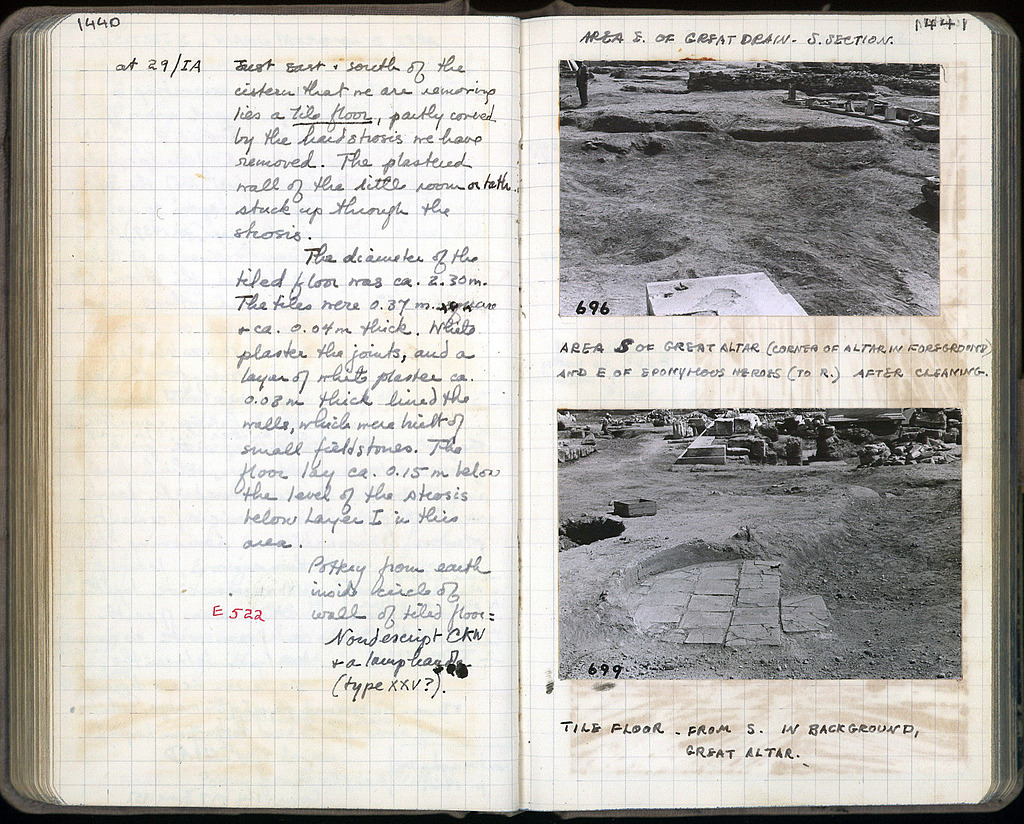 1440
at 29/IA
Just east + south of the
cistern that we are removing
lies a tile floor, partly covered
by the hard strosis we have
removed. The plastered
wall of the little room or bath
stuck up through the
strosis.
The diameter of the
tiled floor was ca. 2.30m.
The tiles were 0.37 m. square
+ ca. 0.04m thick. White
plaster the joints, and a
layer of white plaster ca.
0.03m thick lined the
walls, which were built of
small fieldstones. The
floor lay ca. 0.15 m below
the level of the strosis
below Layer I in this
area.
Pottery from earth
inside circle of
E 522 wall of tiled floor:
Nondescript CRW
+ a lamp handle
(type XXV?).
1441
AREA S. OF GREAT DRAIN - S. SECTION.
696
AREA S OF GREAT ALTAR (CORNER OF ALTAR IN FOREGROUND)
AND E OF EPONYMOUS HEROES (TO R.) AFTER CLEANING.
699
TILE FLOOR - FROM S. IN BACKGROUND,
GREAT ALTAR.